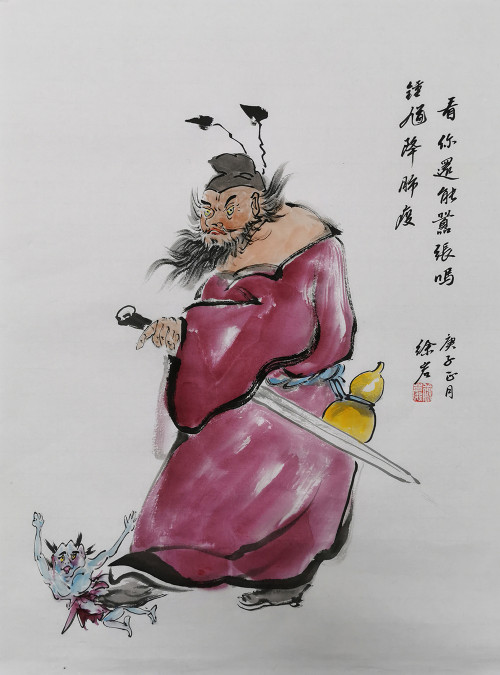 看你還能嚣張嗎
鍾馗降肺疫
庚子正月
徐岩